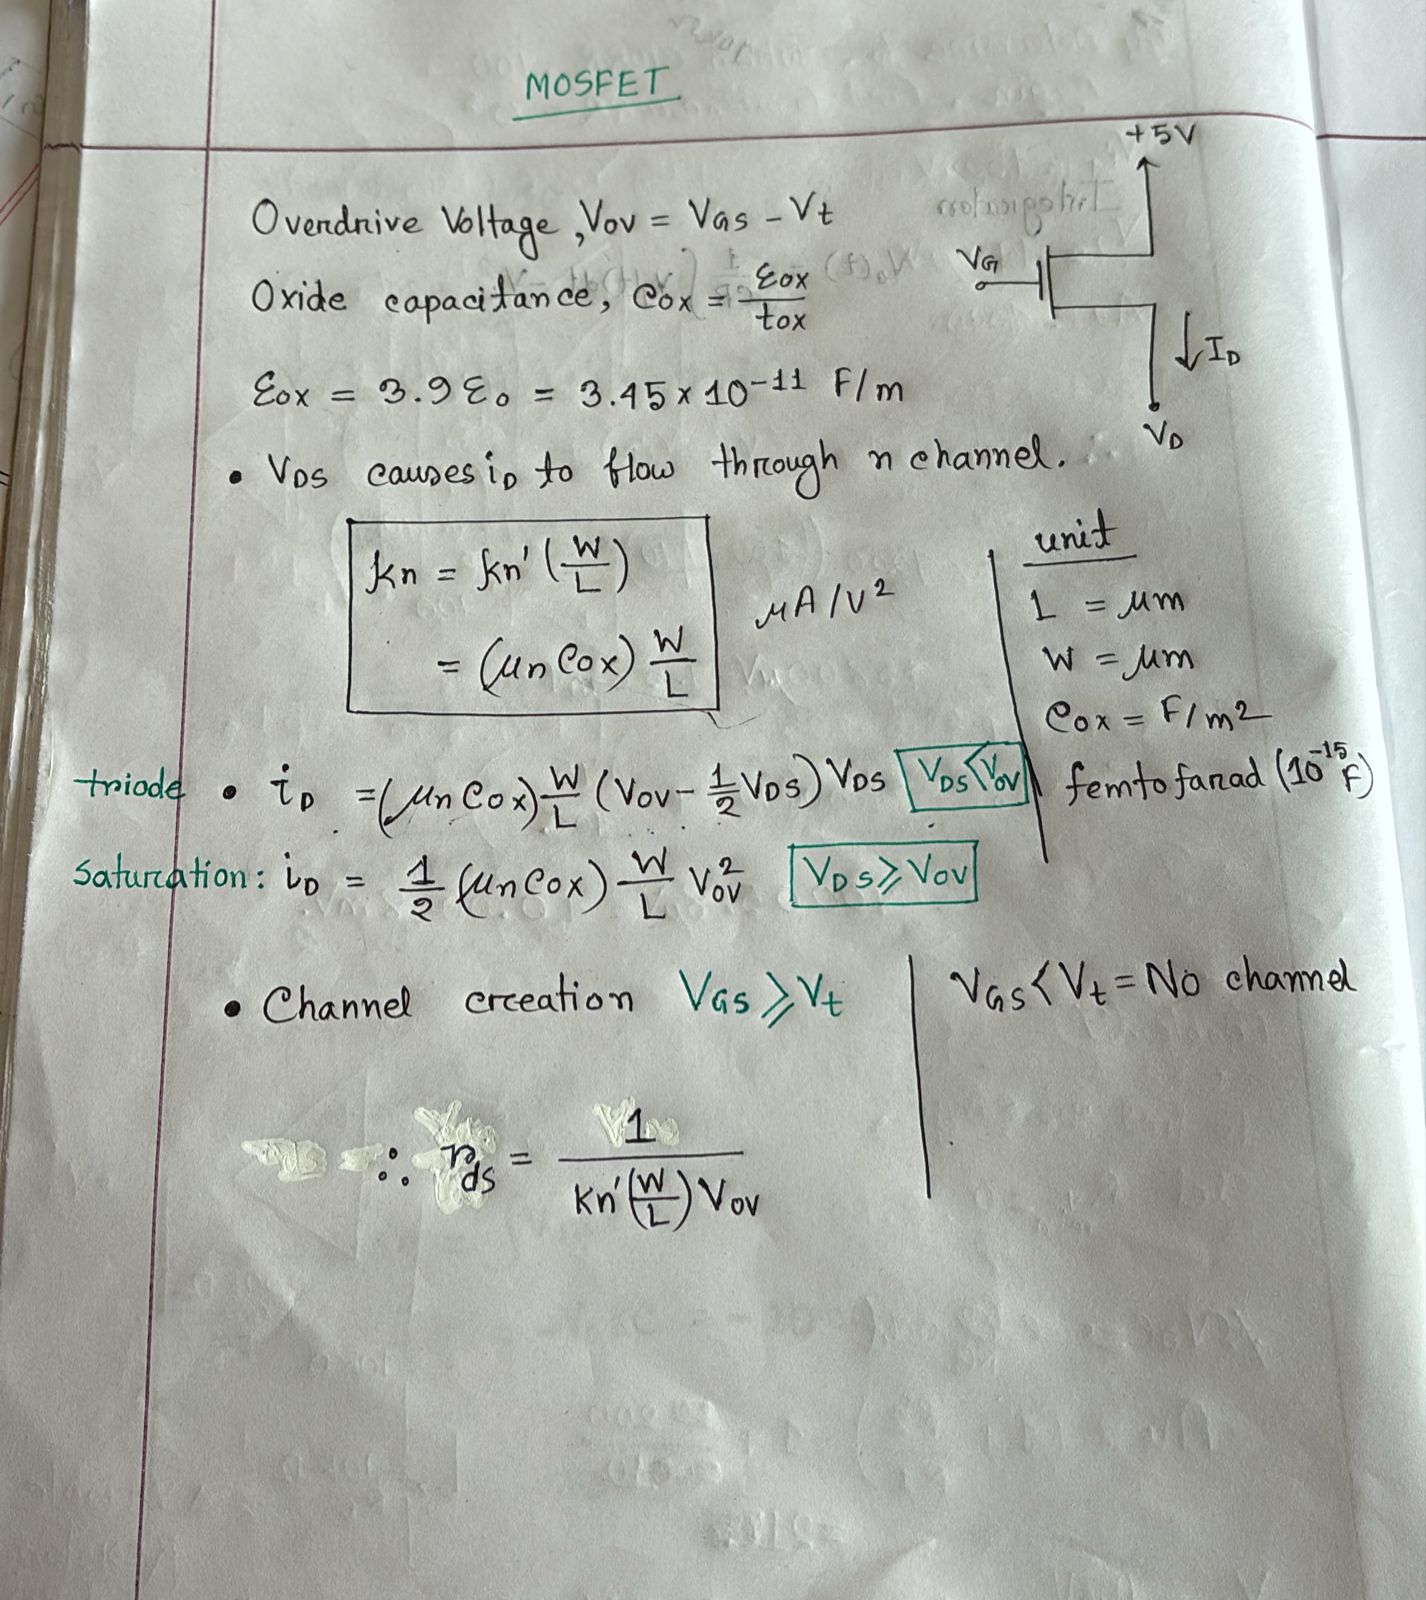 MOSFET
+5V
Overdrive Voltage, Vov = VGS - Vt
VG
Oxide capacitance, Cox = εox/tox
ID
εox = 3.9 ε0 = 3.45 x 10^-11 F/m
VD
• VDS causes iD to flow through n channel.
kn = kn' (W/L)
= (μn Cox) W/L
μA/V²
unit
L = μm
W = μm
Cox = F/m²
femto farad (10^-15 F)
triode • iD = (μn Cox) W/L (Vov - 1/2 VDS) VDS VDS < Vov
Saturation: iD = 1/2 (μn Cox) W/L Vov² VDS ⩾ Vov
• Channel creation VGS ⩾ Vt
VGS < Vt = No channel
∴ rds = 1 / kn' (W/L) Vov